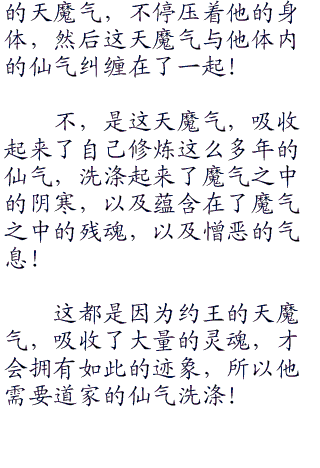 的天魔气，不停压着他的身
体，然后这天魔气与他体内
的仙气纠缠在了一起！
不，是这天魔气，吸收
起来了自己修炼这么多年的
仙气，洗涤起来了魔气之中
的阴寒，以及蕴含在了魔气
之中的残魂，以及憎恶的气
息！
这都是因为约王的天魔
气，吸收了大量的灵魂，才
会拥有如此的迹象，所以他
需要道家的仙气洗涤！